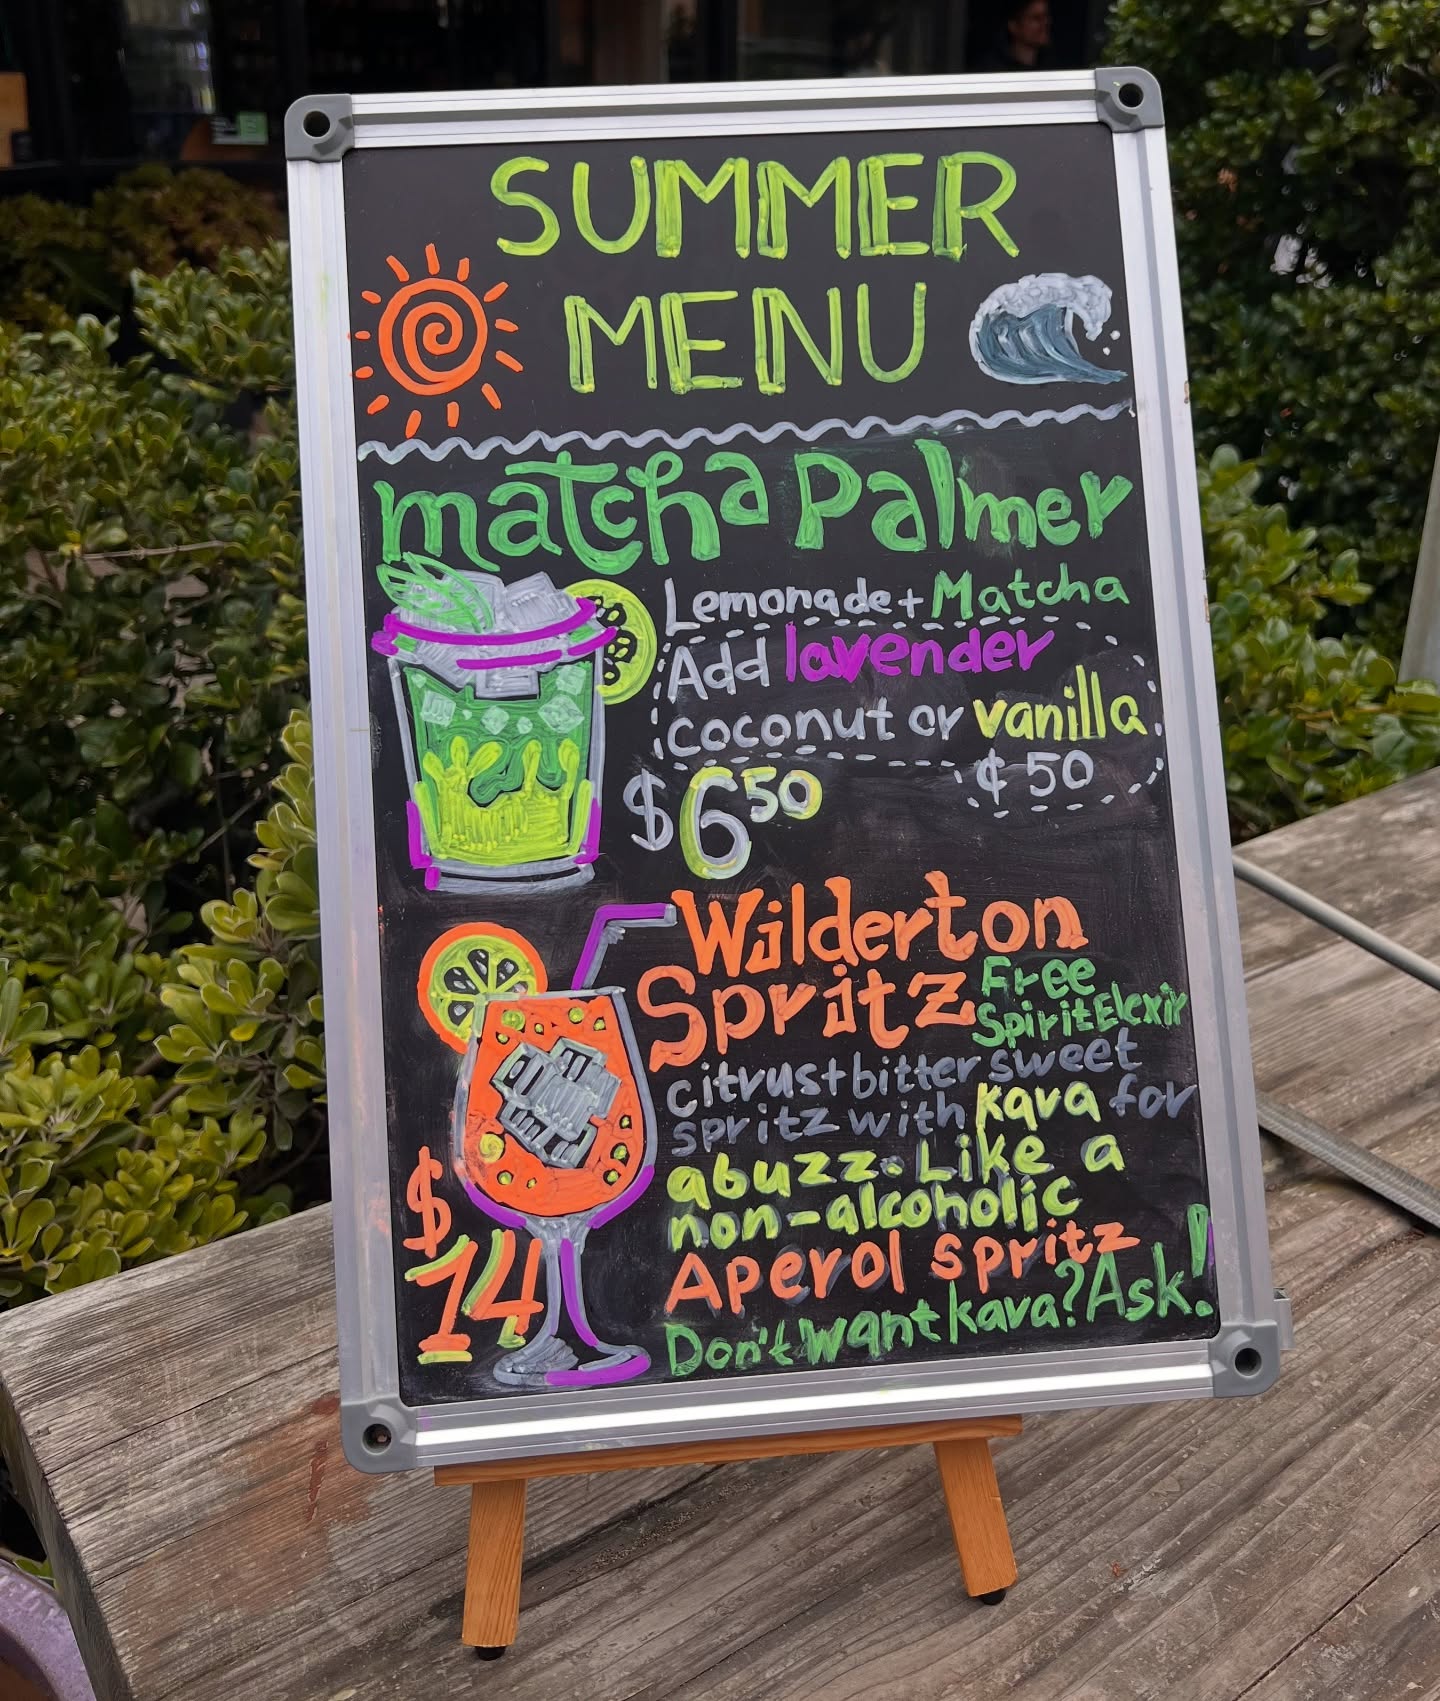 SUMMER
MENU
matcha Palmer
Lemonade + Matcha
Add lavender
coconut or vanilla
¢ 50
$6 50
Wilderton
Spritz
Free
Spirit Elexir
citrus + bitter sweet
spritz with kava for
a buzz. Like a
non-alcoholic
Aperol spritz
Don't want kava? Ask!
$14